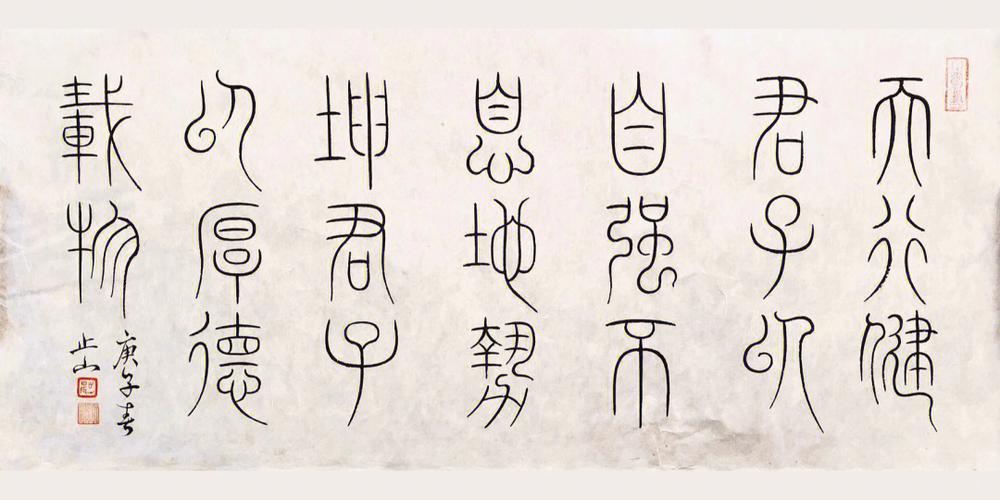 天行健
君子以
自强不
息地勢
坤君子
以厚德
載物
庚子春
止山